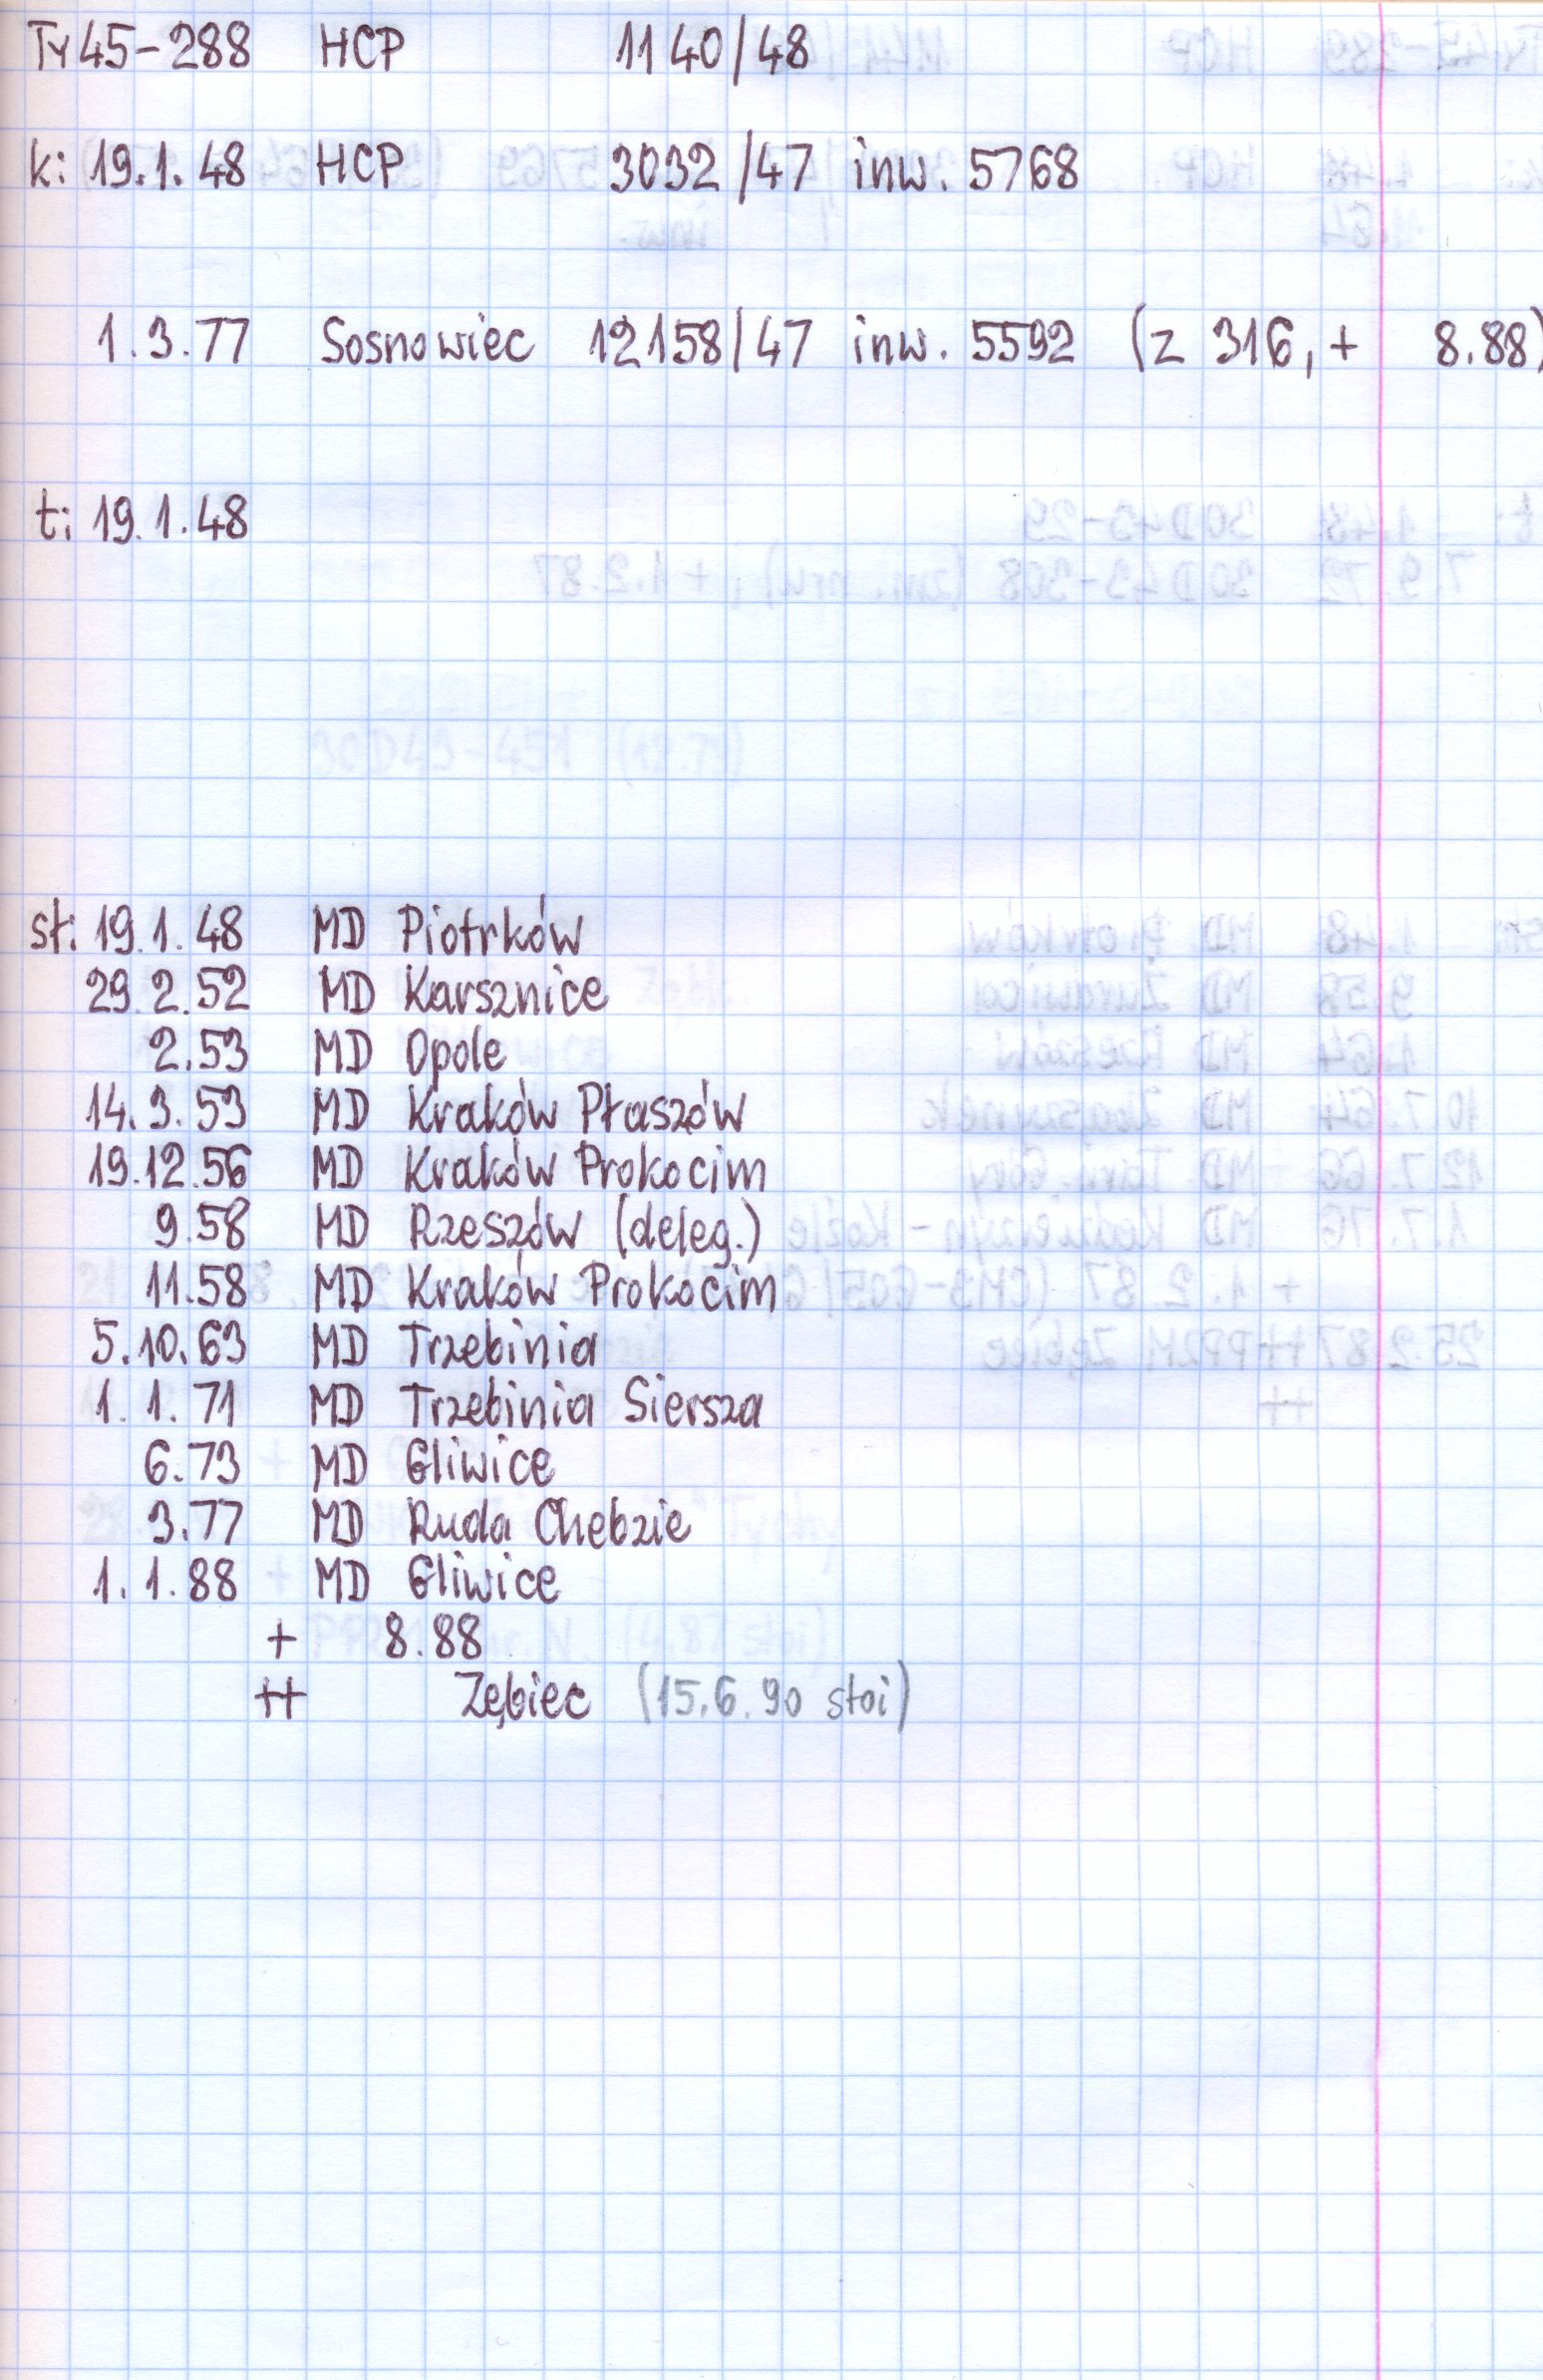 Ty45-288 HCP 1140/48
k: 19.1.48 HCP 3032/47 inw. 5768
1.3.77 Sosnowiec 12158/47 inw. 5592 (z 316, + 8.88)
t: 19.1.48
st: 19.1.48 MD Piotrków
29.2.52 MD Karsznice
2.53 MD Opole
14.3.53 MD Kraków Płaszów
19.12.56 MD Kraków Prokocim
9.58 MD Rzeszów (deleg.)
11.58 MD Kraków Prokocim
5.10.63 MD Trzebinia
1.1.71 MD Trzebinia Siersza
6.73 MD Gliwice
3.77 MD Ruda Chebzie
1.1.88 MD Gliwice
+ 8.88
++ Zębiec (15.6.90 stoi)